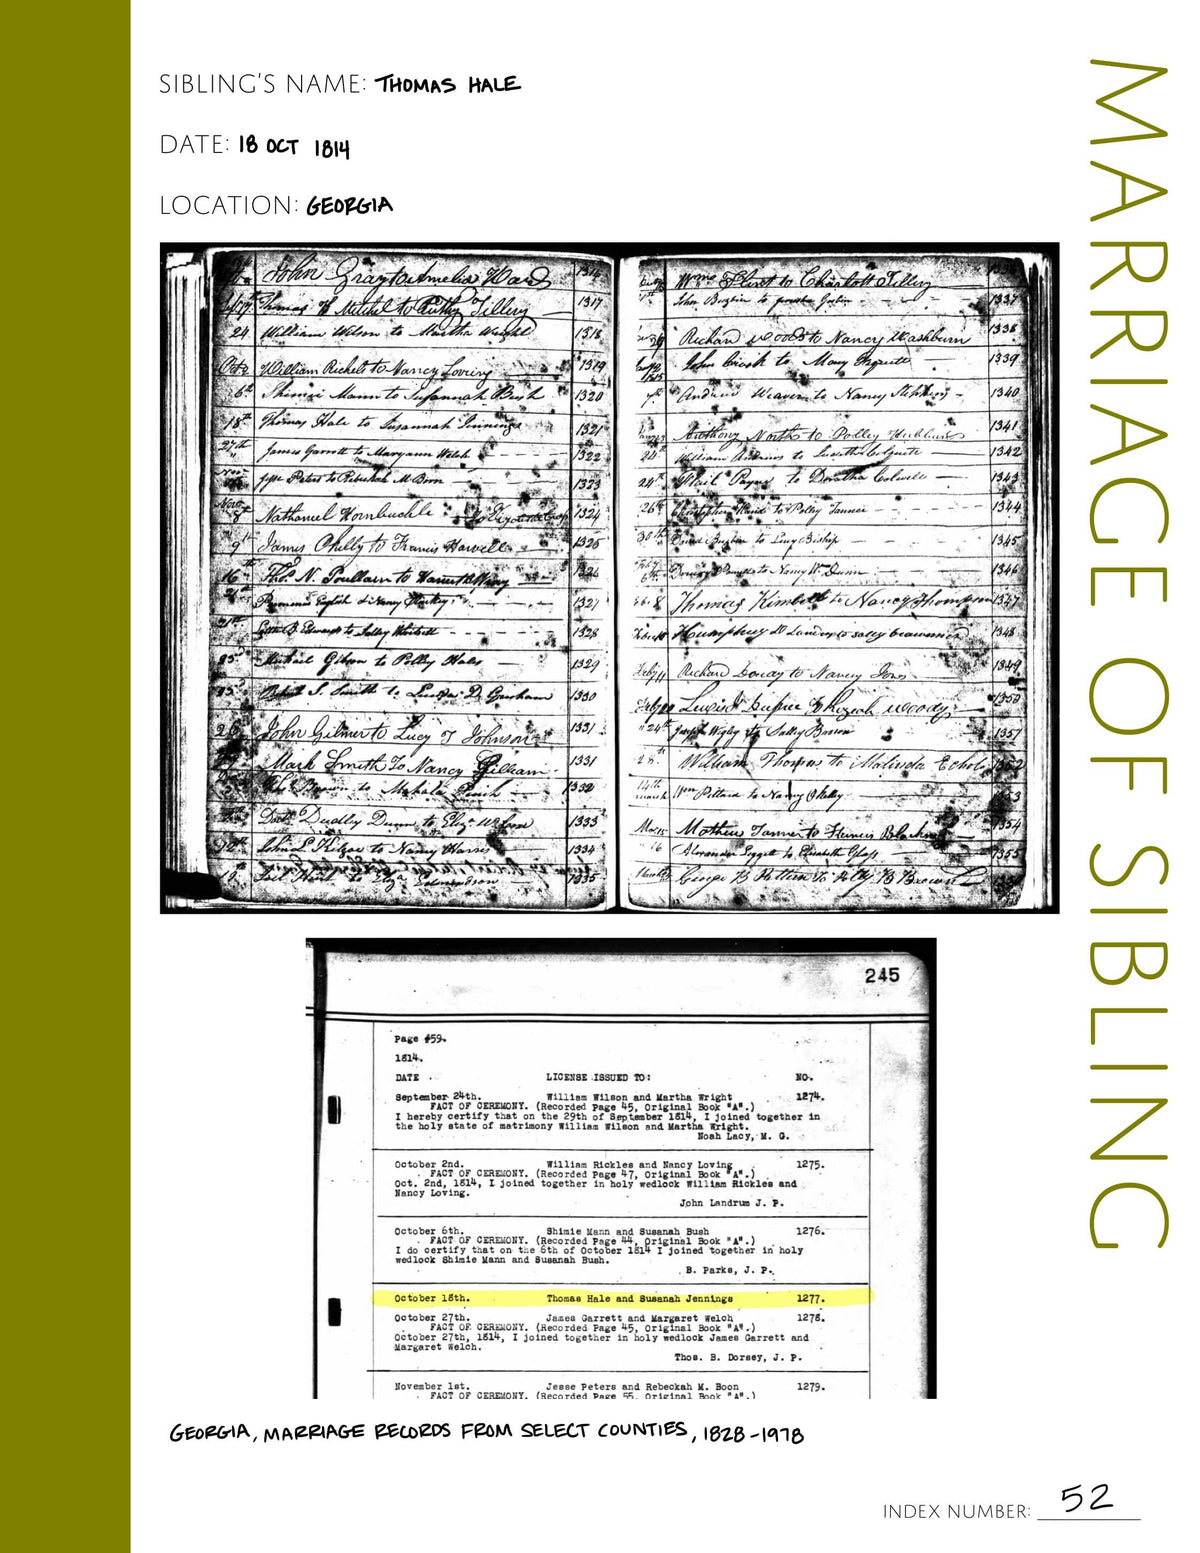 SIBLING'S NAME: THOMAS HALE
DATE: 18 OCT 1814
LOCATION: GEORGIA
MARRIAGE OF SIBLING
John Gray to Amelia Ward
Thomas Mitchel to Tillery 1317
24 William Wilson to Martha Wright 1318
William Rickels to Nancy Loving 1319
6th Shimei Mann to Susannah Bush 1320
18th Thomas Hale to Susannah Jennings 1321
27th James Garrett to Maryann Welch 1322
Jesse Peters to Rebeckah M Boon 1323
Nathaniel Hornbuckle 1324
9th James Okelly to Francis Harvell 1325
16th Thos. N. Poullain to Harriet 1326
1327
21st B. Edwards to Salley 1328
23d Michael Gibson to Polly Hales 1329
23d S. Smith to D. Gresham 1330
26 John Gilmer to Lucy T Johnson 1331
Mark Smith To Nancy Gilliam 1331
Brown to Mahala 1332
Dudley Dunn to Eliza Wilson 1333
John L Kilgore to Nancy Harris 1334
to Eliza Edmondson 1335
Wm Flint to Charlott Tillery
John to 1337
Richard Woods to Nancy Washburn 1338
John to Mary 1339
Andrew Weaver to Nancy 1340
Anthony North to Polly 1341
24th William Andrews to 1342
24th Payne to Doratha Colwell 1343
26th Christopher to Polly Tanner 1344
30th to Lucy Bishop 1345
to Nancy Wm Dunn 1346
Thomas Kimbell to Nancy Thompson 1347
Humphrey to Salley 1348
Richard to Nancy 1349
Lewis J Dupree Woody 1350
24th Joseph Wigley to Salley 1351
28 William Thomas to Malinda Echols 1352
14th March Wm Pollard to Nancy Okelley
Mar 15 Mathew Tanner to Francis 1354
16 Alexander Leggett to Elizabeth Glass 1355
George B to B Brown
245
Page #59.
1814.
DATE LICENSE ISSUED TO: NO.
September 24th. William Wilson and Martha Wright 1274.
FACT OF CEREMONY. (Recorded Page 45, Original Book "A".)
I hereby certify that on the 29th of September 1814, I joined together in
the holy state of matrimony William Wilson and Martha Wright.
Noah Lacy, M. G.
October 2nd. William Rickles and Nancy Loving 1275.
FACT OF CEREMONY. (Recorded Page 47, Original Book "A".)
Oct. 2nd, 1814, I joined together in holy wedlock William Rickles and
Nancy Loving.
John Landrum J. P.
October 6th. Shimie Mann and Susanah Bush 1276.
FACT OF CEREMONY. (Recorded Page 44, Original Book "A".)
I do certify that on the 6th of October 1814 I joined together in holy
wedlock Shimie Mann and Susanah Bush.
B. Parks, J. P.
October 18th. Thomas Hale and Susanah Jennings 1277.
October 27th. James Garrett and Margaret Welch 1278.
FACT OF CEREMONY. (Recorded Page 45, Original Book "A".)
October 27th, 1814, I joined together in holy wedlock James Garrett and
Margaret Welch.
Thos. B. Dorsey, J. P.
November 1st. Jesse Peters and Rebeckah M. Boon 1279.
FACT OF CEREMONY. (Recorded Page 55, Original Book "A".)
GEORGIA, MARRIAGE RECORDS FROM SELECT COUNTIES, 1828-1978
INDEX NUMBER: 52